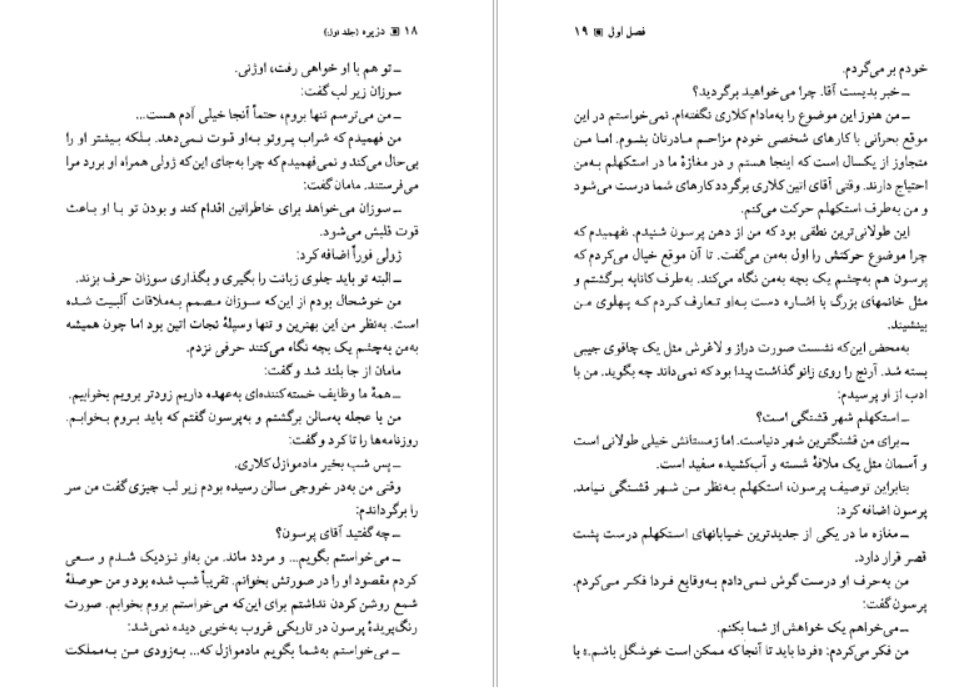 ۱۸ دزیره (جلد اول)
ــ تو هم با او خواهی رفت، اوژنی.
سوزان زیر لب گفت:
ــ من می‌ترسم تنها بروم، حتماً آنجا خیلی آدم هست...
من فهمیدم که شراب پروتو به‌او قوت نمی‌دهد. بلکه بیشتر او را
بی‌حال می‌کند و نمی‌فهمیدم که چرا به‌جای این‌که ژولی همراه او برود مرا
می‌فرستند. مامان گفت:
ــ سوزان می‌خواهد برای خاطراتین اقدام کند و بودن تو با او باعث
قوت قلبش می‌شود.
ژولی فوراً اضافه کرد:
ــ البته تو باید جلوی زبانت را بگیری و بگذاری سوزان حرف بزند.
من خوشحال بودم از این‌که سوزان مصمم به‌ملاقات آلبیت شده
است. به‌نظر من این بهترین و تنها وسیلهٔ نجات اتین بود اما چون همیشه
به‌من به‌چشم یک بچه نگاه می‌کنند حرفی نزدم.
مامان از جا بلند شد و گفت:
ــ همهٔ ما وظایف خسته‌کننده‌ای به‌عهده داریم زودتر برویم بخوابیم.
من با عجله به‌سالن برگشتم و به‌پرسون گفتم که باید بروم بخوابم.
روزنامه‌ها را تا کرد و گفت:
ــ پس شب بخیر مادموازل کلاری.
وقتی من به‌در خروجی سالن رسیده بودم زیر لب چیزی گفت من سر
را برگرداندم:
ــ چه گفتید آقای پرسون؟
ــ می‌خواستم بگویم... و مردد ماند. من به‌او نزدیک شدم و سعی
کردم مقصود او را در صورتش بخوانم. تقریباً شب شده بود و من حوصلهٔ
شمع روشن کردن نداشتم برای این‌که می‌خواستم بروم بخوابم. صورت
رنگ‌پریدهٔ پرسون در تاریکی غروب به‌خوبی دیده نمی‌شد:
ــ می‌خواستم به‌شما بگویم مادموازل که... به‌زودی من به‌مملکت
فصل اول ۱۹
خودم بر می‌گردم.
ــ خبر بدیست آقا. چرا می‌خواهید برگردید؟
ــ من هنوز این موضوع را به‌مادام کلاری نگفته‌ام. نمی‌خواستم در این
موقع بحرانی با کارهای شخصی خودم مزاحم مادرتان بشوم. اما من
متجاوز از یکسال است که اینجا هستم و در مغازهٔ ما در استکهلم به‌من
احتیاج دارند. وقتی آقای اتین کلاری برگردد کارهای شما درست می‌شود
و من به‌طرف استکهلم حرکت می‌کنم.
این طولانی‌ترین نطقی بود که من از دهن پرسون شنیدم. نفهمیدم که
چرا موضوع حرکتش را اول به‌من می‌گفت. تا آن موقع خیال می‌کردم که
پرسون هم به‌چشم یک بچه به‌من نگاه می‌کند. به‌طرف کاناپه برگشتم و
مثل خانمهای بزرگ با اشاره دست به‌او تعارف کردم که پهلوی من
بینشیند.
به‌محض این‌که نشست صورت دراز و لاغرش مثل یک چاقوی جیبی
بسته شد. آرنج را روی زانو گذاشت پیدا بود که نمی‌داند چه بگوید. من با
ادب از او پرسیدم:
ــ استکهلم شهر قشنگی است؟
ــ برای من قشنگترین شهر دنیاست. اما زمستانش خیلی طولانی است
و آسمان مثل یک ملافهٔ شسته و آب‌کشیده سفید است.
بنابراین توصیف پرسون، استکهلم به‌نظر من شهر قشنگی نیامد.
پرسون اضافه کرد:
ــ مغازه ما در یکی از جدیدترین خیابانهای استکهلم درست پشت
قصر قرار دارد.
من به‌حرف او درست گوش نمی‌دادم به‌وقایع فردا فکر می‌کردم.
پرسون گفت:
ــ می‌خواهم یک خواهش از شما بکنم.
من فکر می‌کردم: «فردا باید تا آنجا که ممکن است خوشگل باشم.» با